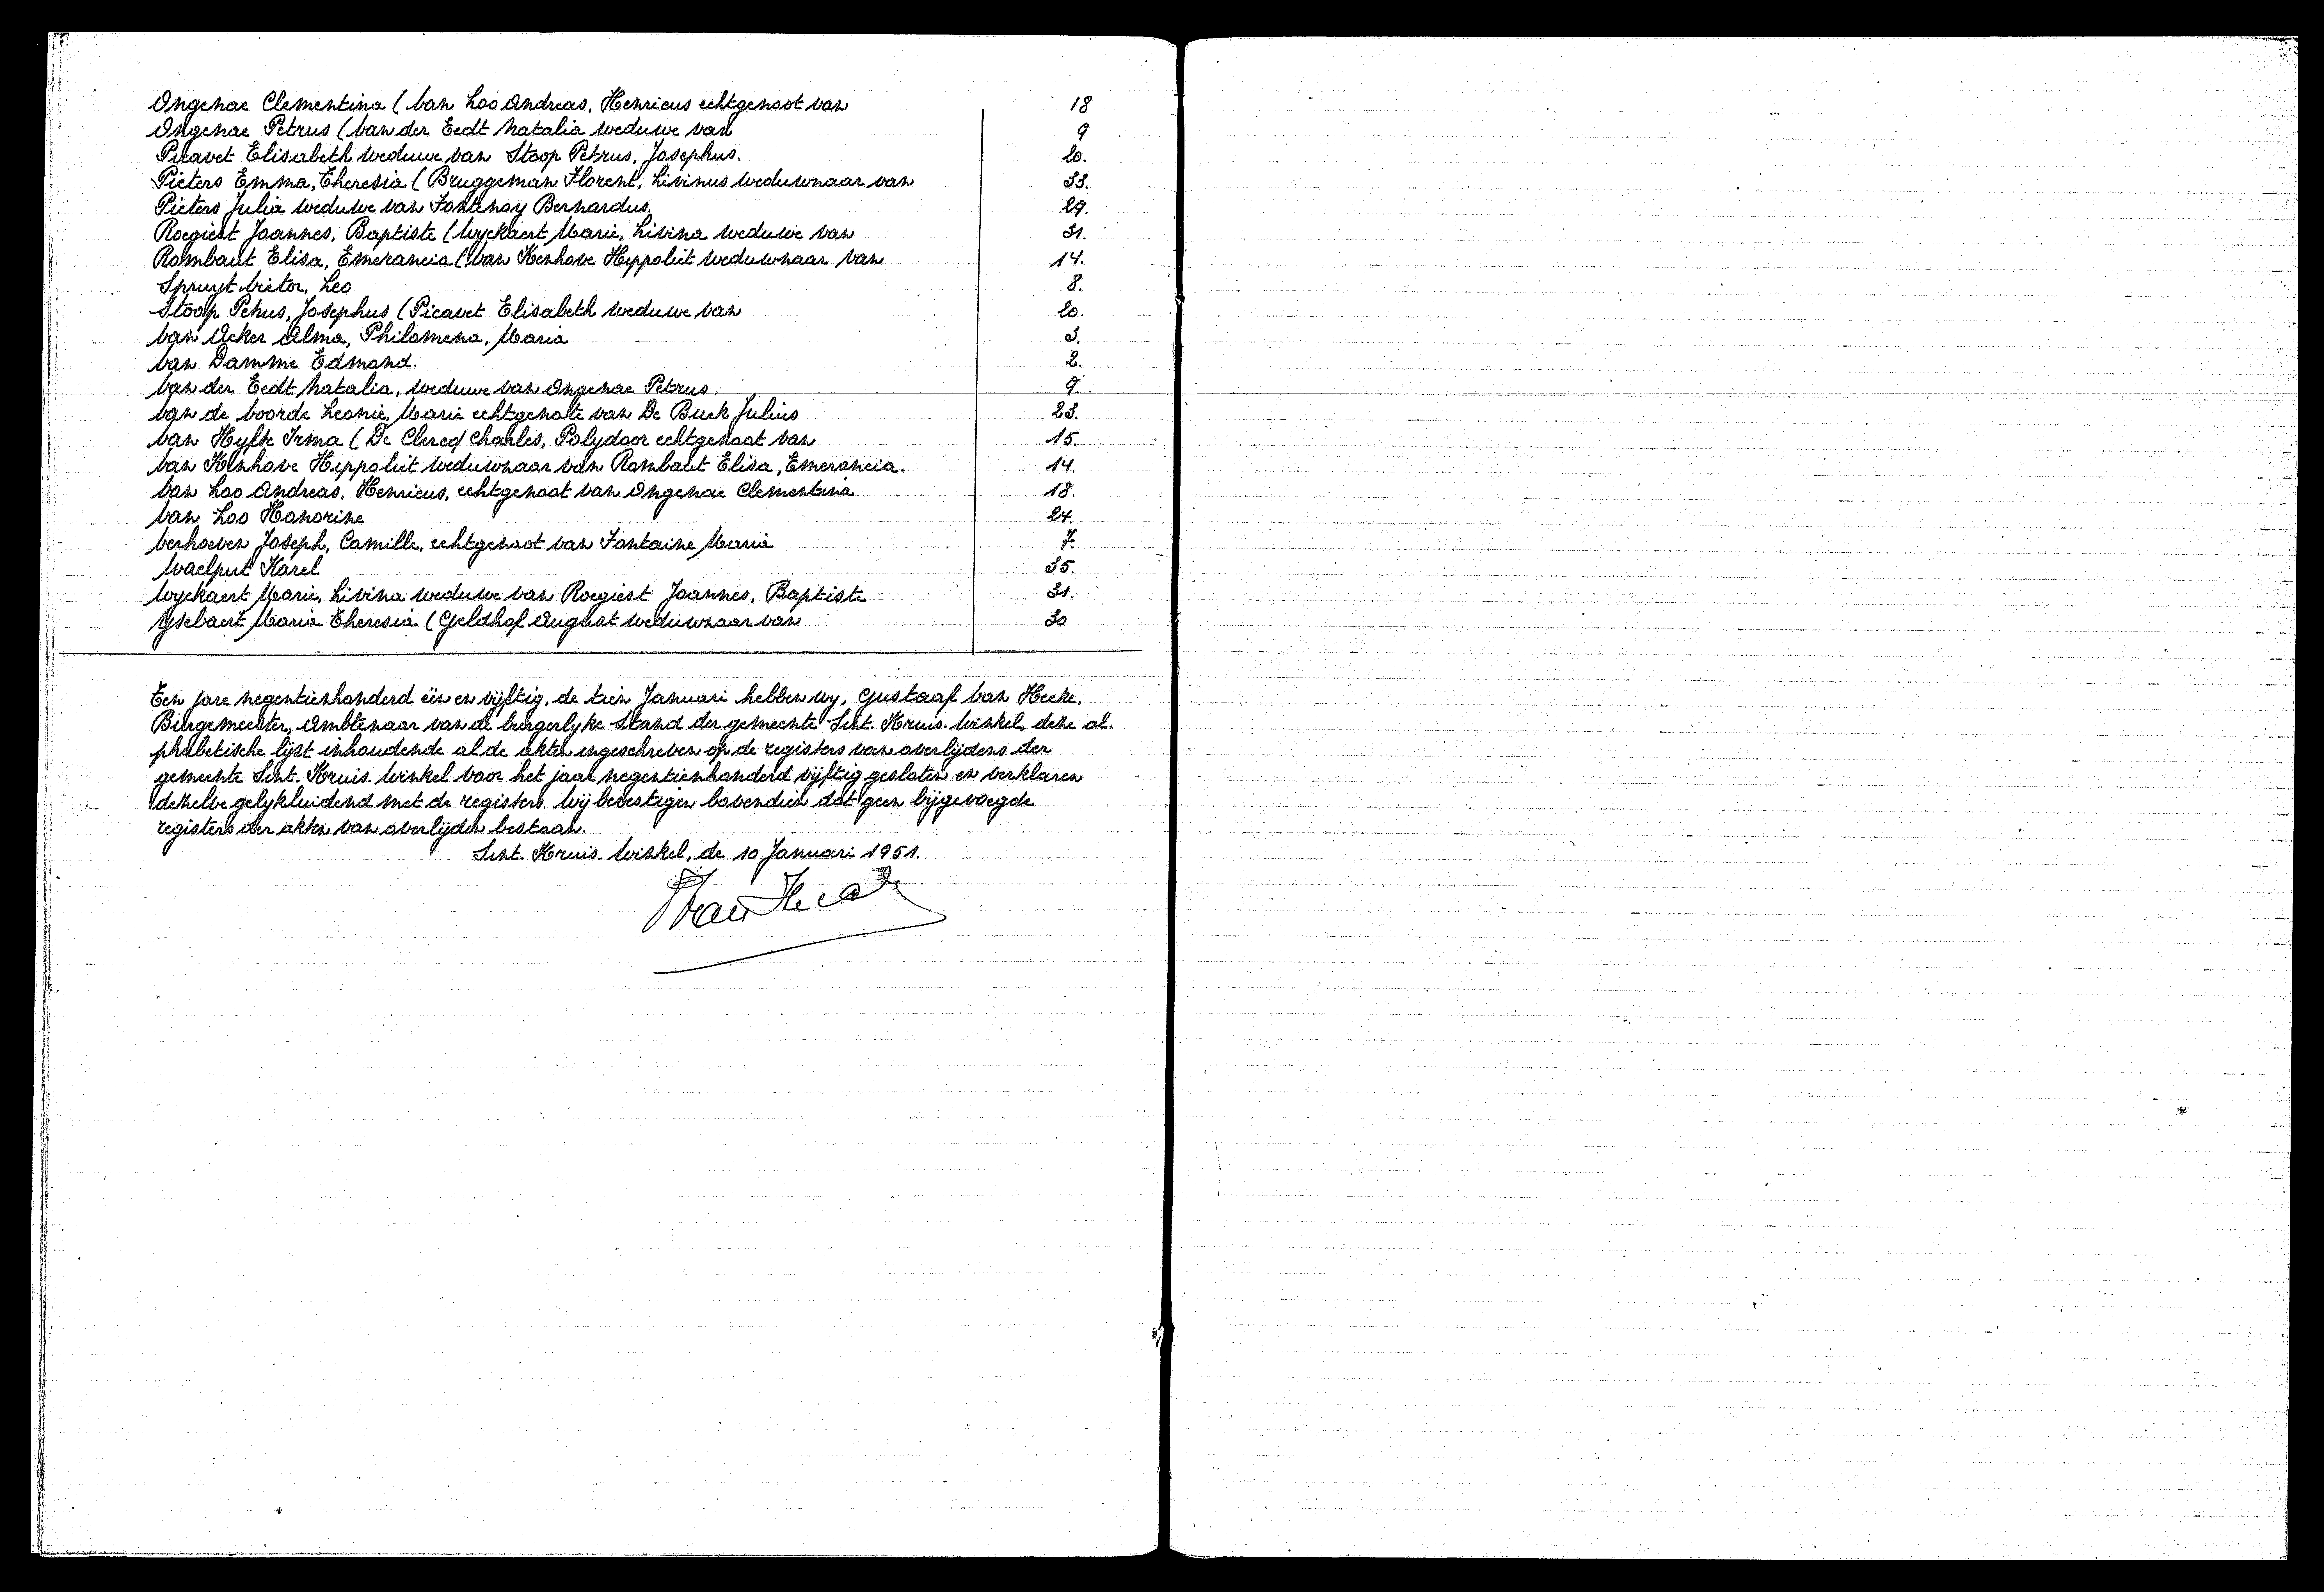 Ongenae Clementina (Van Loo Andreas, Henricus echtgenoot van 18
Ongenae Petrus (Van der Eedt Natalia weduwe van 9
Picavet Elisabeth weduwe van Stoop Petrus, Josephus. 20.
Pieters Emma, Theresia (Bruggeman Florent, Livinus weduwnaar van 33.
Pieters Julia weduwe van Fontenoy Bernardus. 29.
Roegiest Joannes, Baptiste (Wyckaert Marie, Livina weduwe van 31.
Rombaut Elisa, Emerancia (Van Kenhove Hippoliet weduwnaar van 14.
Spruyt Victor, Leo 8.
Stoop Petrus, Josephus (Picavet Elisabeth weduwe van 20.
Van Acker Alma, Philomena, Maria 3.
Van Damme Edmond. 2.
Van der Eedt Natalia, weduwe van Ongenae Petrus. 9.
Van de Voorde Leonie, Marie echtgenote van De Buck Julius 23.
Van Hylte Irma (De Clercq Charles, Polydoor echtgenoot van 15.
Van Kenhove Hippoliet weduwnaar van Rombaut Elisa, Emerancia. 14.
Van Loo Andreas, Henricus, echtgenoot van Ongenae Clementina 18.
Van Loo Honorine 24.
Verhoeven Joseph, Camille, echtgenoot van Fontaine Maria 7.
Waelput Karel 35.
Wyckaert Marie, Livina weduwe van Roegiest Joannes, Baptiste 31.
Ysebaert Maria Theresia (Geldhof August weduwnaar van 30
Ten jare negentienhonderd één en vijftig, de tien Januari hebben wy, Gustaaf Van Hecke,
Burgemeester, Ambtenaar van de burgerlyke Stand der gemeente Sint-Kruis-Winkel, deze al-
phabetische lijst inhoudende al de akten ingeschreven op de registers van overlijdens der
gemeente Sint-Kruis-Winkel voor het jaar negentienhonderd vijftig gesloten en verklaren
dezelve gelykluidend met de registers. Wij bevestigen bovendien dat geen bijgevoegde
registers der akten van overlijden bestaan.
Sint-Kruis-Winkel, de 10 Januari 1951.